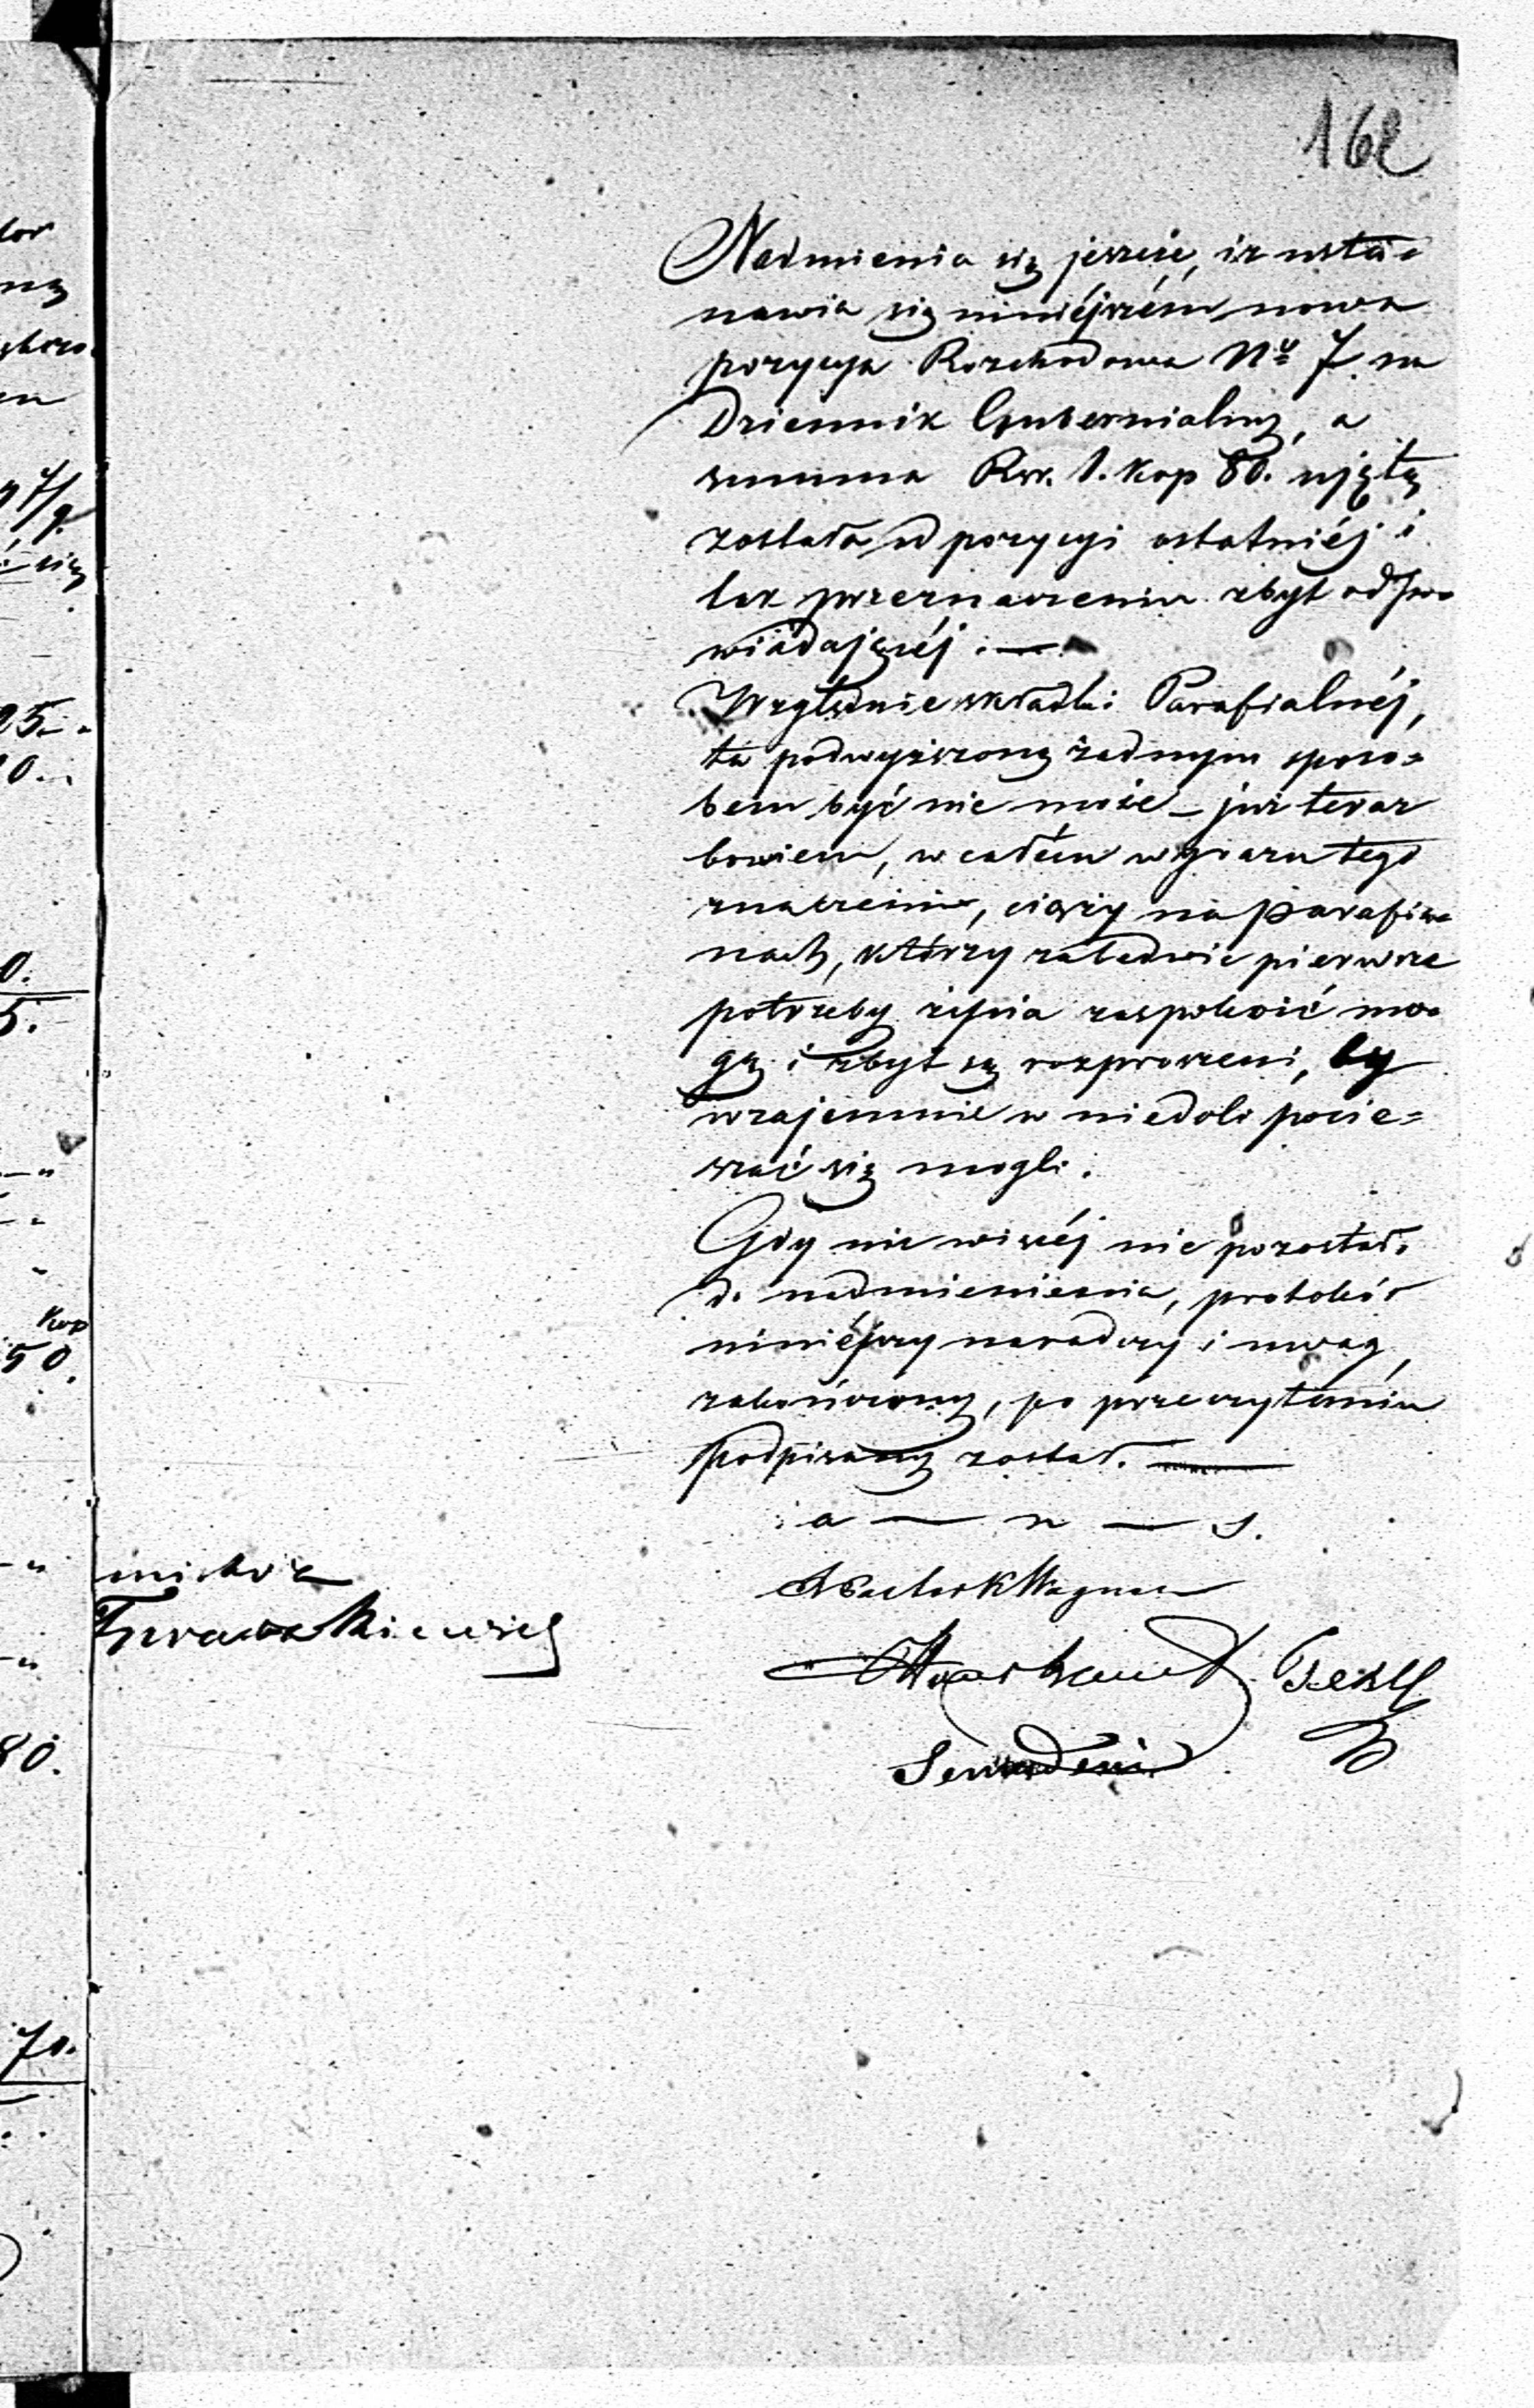 162
Nadmienia się jeszcze, iż usta=
nawia się niniéjszém nowa
pozycya Rozchodowa No 7. na
Dziennik Gubernialny, a
summa Rsr. 1. Kop 80. ujętą
została od pozycyi ostatniéj i
tak przeznaczeniu zbyt odpo=
wiadającéj. —
Względnie składki Parafialnéj,
ta podwyższoną żadnym sposo=
bem być nie może – już teraz
bowiem, w całém wyrazu tego
znaczeniu, ciąży na Parafia=
nach, którzy zaledwie pierwsze
potrzeby życia zaspokoić mo=
gą i zbyt są rozproszeni, by
wzajemnie w niedoli pocie=
szać się mogli.
Gdy nic więcéj nie pozostało
do nadmienienia, protokół
niniéjszy narady i uwag,
zakończony, po przeczytaniu
podpisany został. —
a — n — s.
Wagner